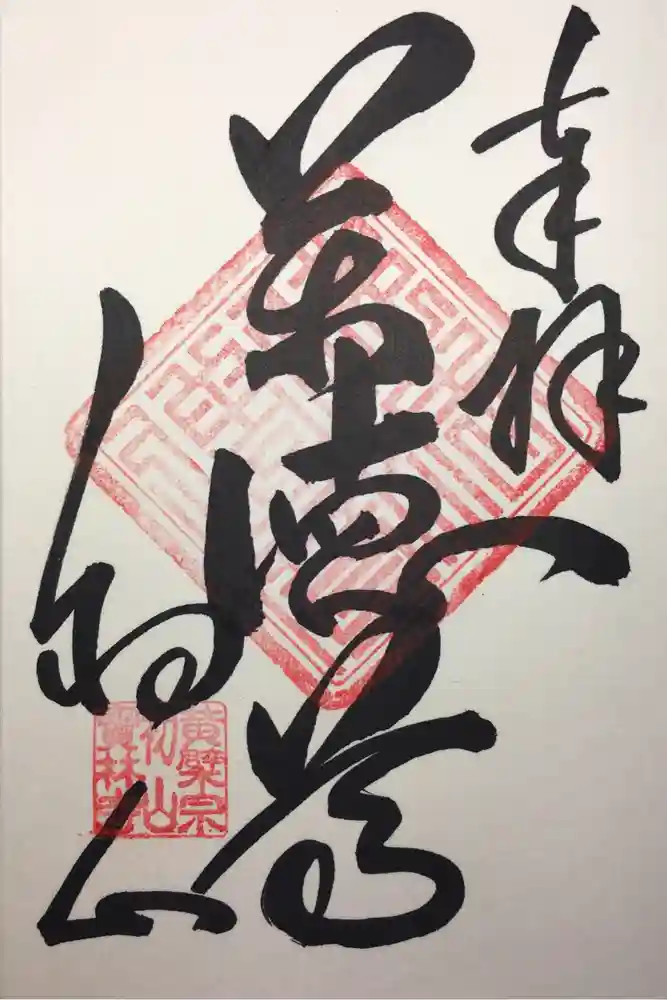 奉拝
萬徳尊
初山
黄檗宗
初山
寶林寺